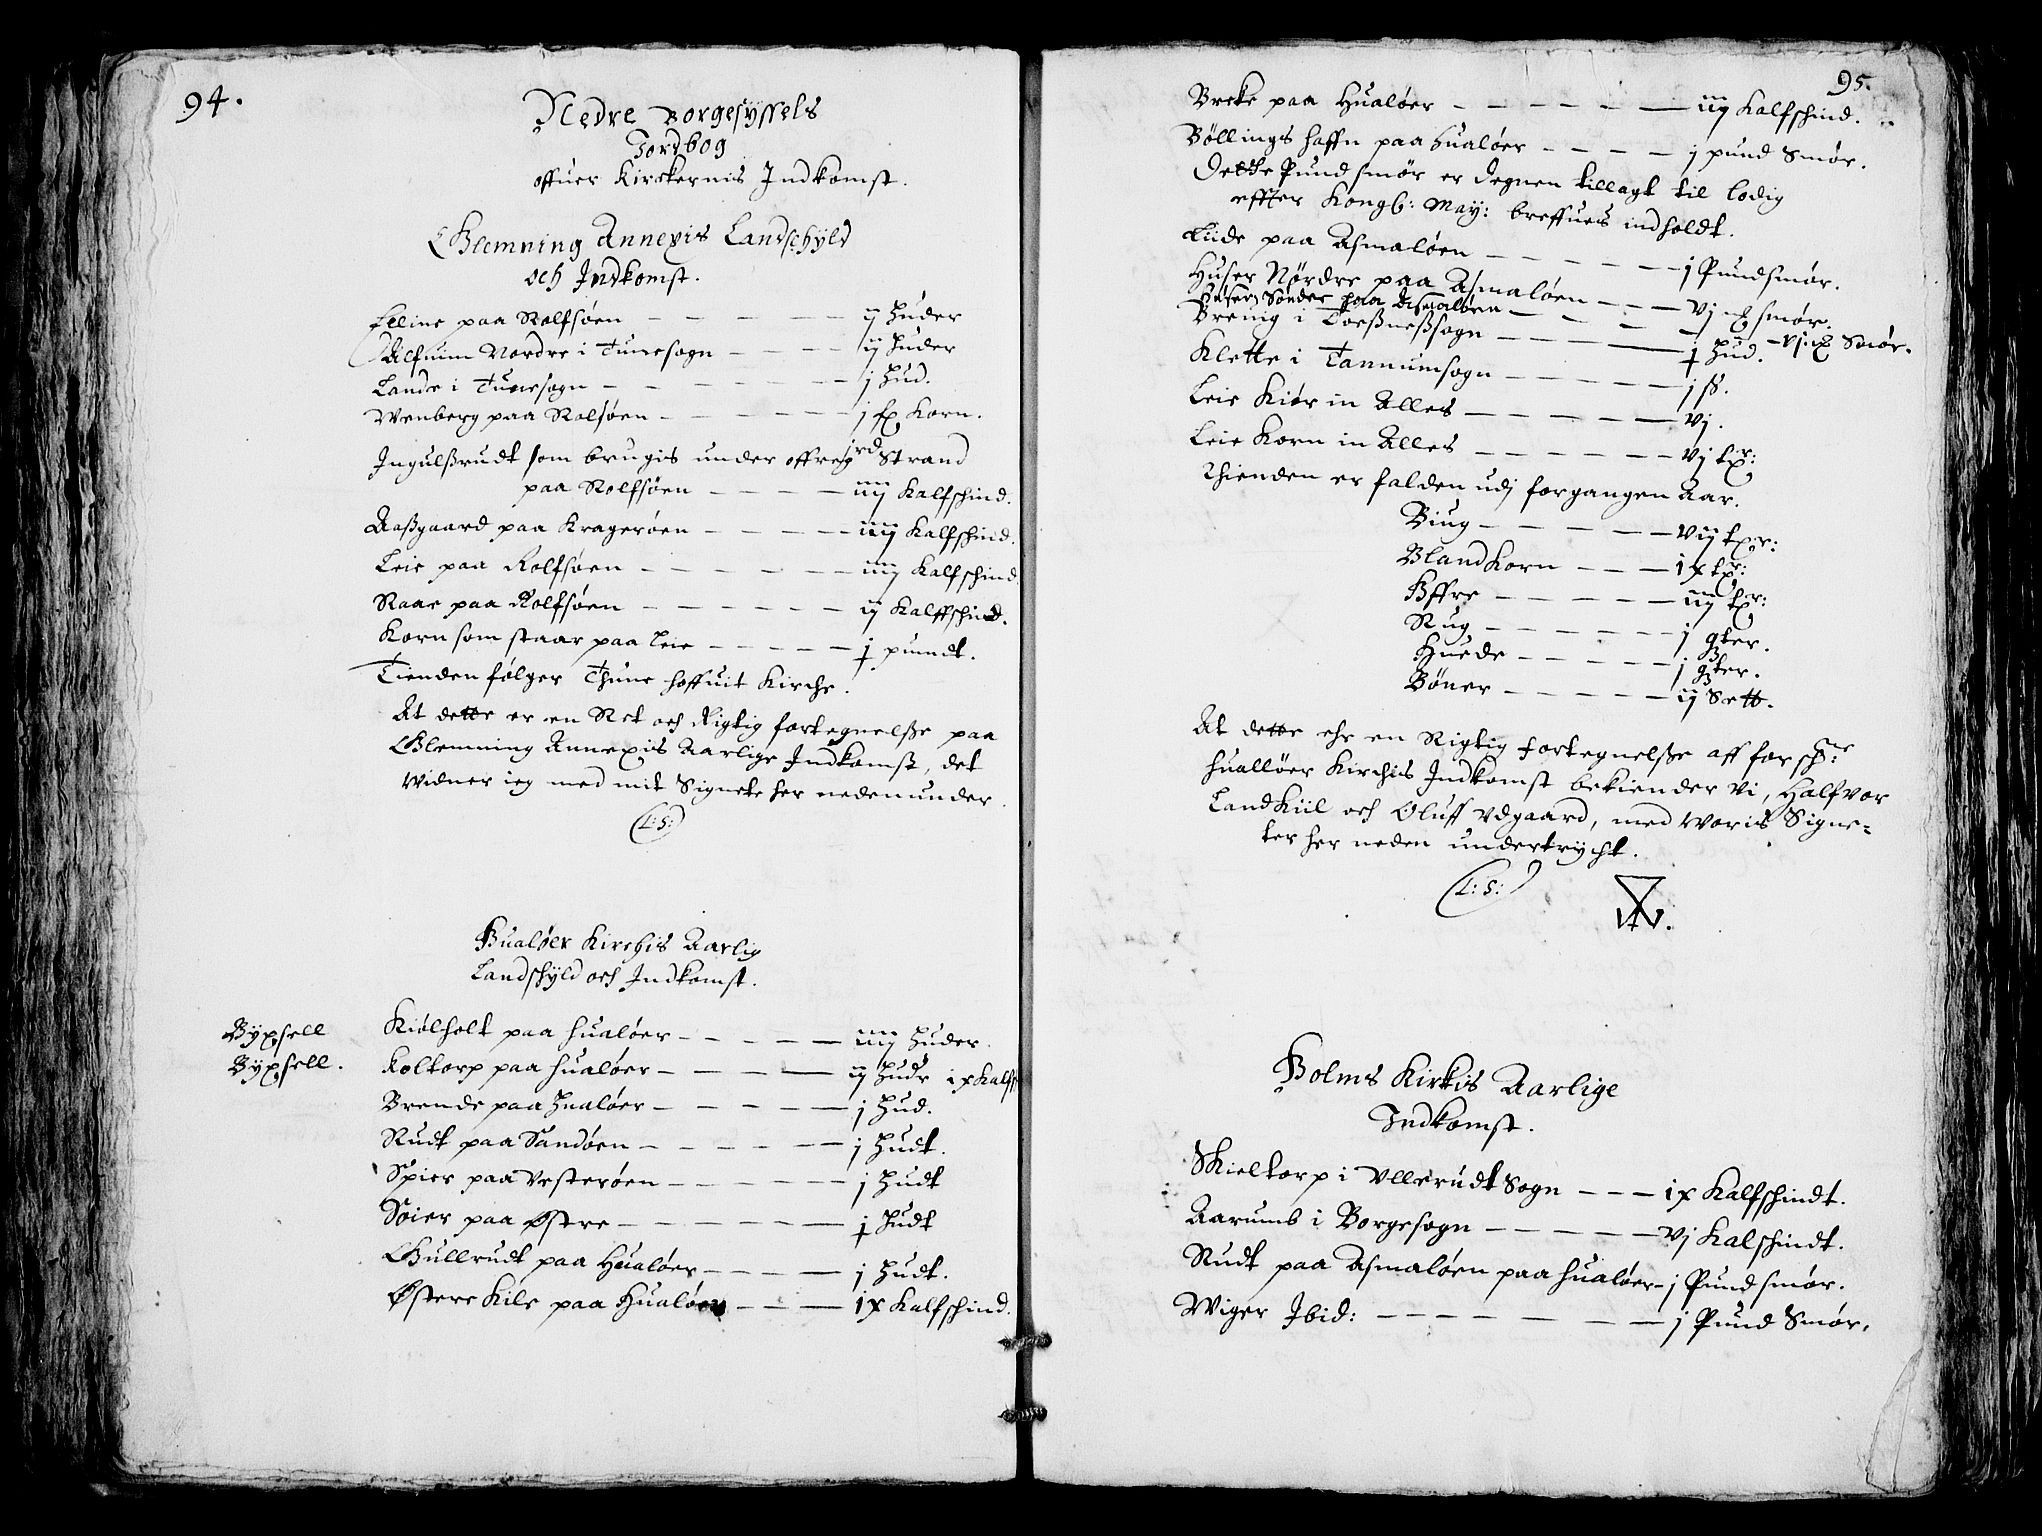 94.
Nedre Borgesyssels
Jordbog
offuer Kirckernis Indkomst.
Glemning Annexis Landschyld
och Indkomst.
Elline paa Rolfsøen — ij Huder
Alfuim Nordre i Tunesogn — ij Huder
Lande i Tunesogn — j Hud.
Wenberg paa Rolsøen — j fz Korn.
Ingulßrudt som brugis under offregrd Strand
paa Rolfsøen — iiij Kalfschind.
Aaßgaard paa Kragerøen — iiij Kalfschind.
Leie paa Rolfsøen — iiij Kalfschind.
Raae paa Rolfsøen — ij Kalffschind.
Korn som staar paa Leie — j pundt.
Tienden følger Thune hoffuit Kirche.
At dette er en Ret och Rigtig fortegnelße paa
Glemning Annexis Aarlige Indkomst, det
Widner ieg med mit Signete her nedenunder.
(L:S:)
Hualøer Kirchis Aarlig
Landschyld och Indkomst.
Byxsell Kiølholt paa Hualøer — iiij Huder.
Byxsell. Roltorp paa Hualøer — ij Hude ix Kalfs
Brende paa Hualøer — j Hud.
Rudt paa Sandøen — j Hudt.
Spier paa Vesterøen — j Hudt
Søier paa Østre — j Hudt
Gullrudt paa Hualøer — j Hudt.
Østere Kile paa Hualøer — ix Kalfschind.
95.
Breke paa Hualøer — iij Kalfschind.
Bøllings haffn paa Hualøer — j pund Smør.
Dette Pund smør er Degnen tillagt til lodig
effter Kongl: May: breffues indholdt.
Liide paa Asmaløen — j Pund smør.
Huser Nørdre paa Asmaløen — vj mk smør.
Huser Sønder paa Asmaløen — vj mk Smør.
Brenig i Toeßneßsogn — j Hud.
Klette i Tannumsogn — j ß.
Leie Kiør in Alles — vj.
Leie Korn in Alles — vj txr:
Thienden er falden udj forgangen Aar.
Biug — vij txr:
Bland Korn — ix txr:
Hffre — iij txr:
Rug — j qter.
Huede — j qter.
Bøner — ij Sett.
At dette ehr en Rigtig fortegnelße aff forschne:
Hualløer Kirchis Indkomst bekiender vi, Halfvor
Landkiil och Oluff Vdgaard, med Woris Signe=
ter her neden undertrycht.
(L:S:)
Holms Kirkis Aarlige
Indkomst.
Skieltorp i Ullerudt Sogn — ix Kalfschindt.
Aarumb i Borgesogn — vj Kalschindt.
Rudt paa Asmaløen paa Hualøer — j Pund smør.
Wiger Ibid: — j Pund Smør.